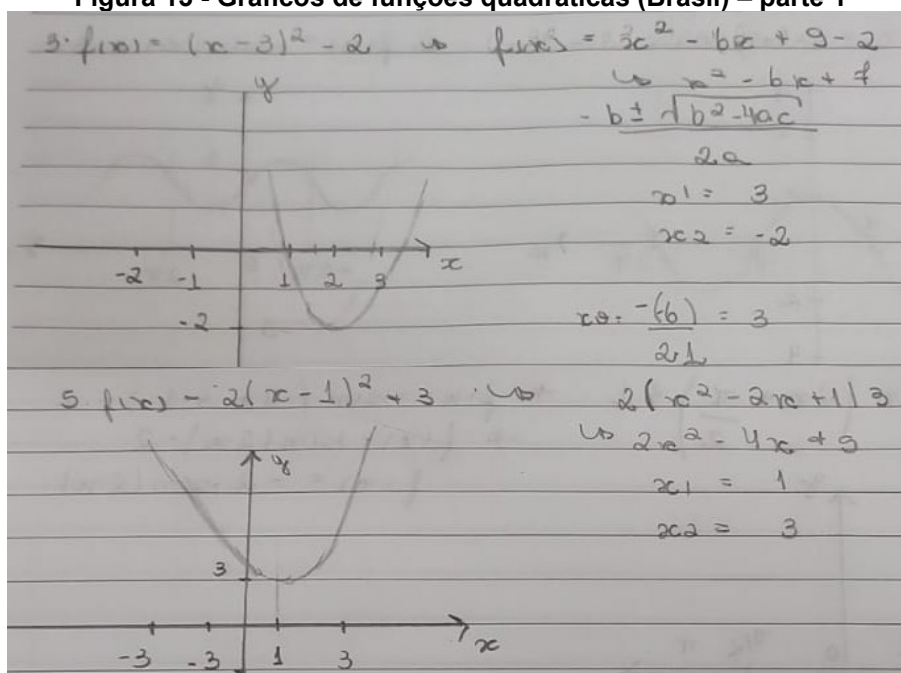 Figura 15 - Gráficos de funções quadráticas (Brasil) – parte 1
3. f(x) = (x-3)² - 2 ↪ f(x) = x² - 6x + 9 - 2
↪ x² - 6x + 7
y
- b ± √b² - 4ac
2a
x1 = 3
x2 = -2
x
-2 -1 1 2 3
-2
xv = -(-6) = 3
2.1
5 f(x) = 2(x-1)² + 3 ↪ 2(x² - 2x + 1) 3
↪ 2x² - 4x + 9
y
x1 = 1
x2 = 3
3
x
-3 -3 1 3